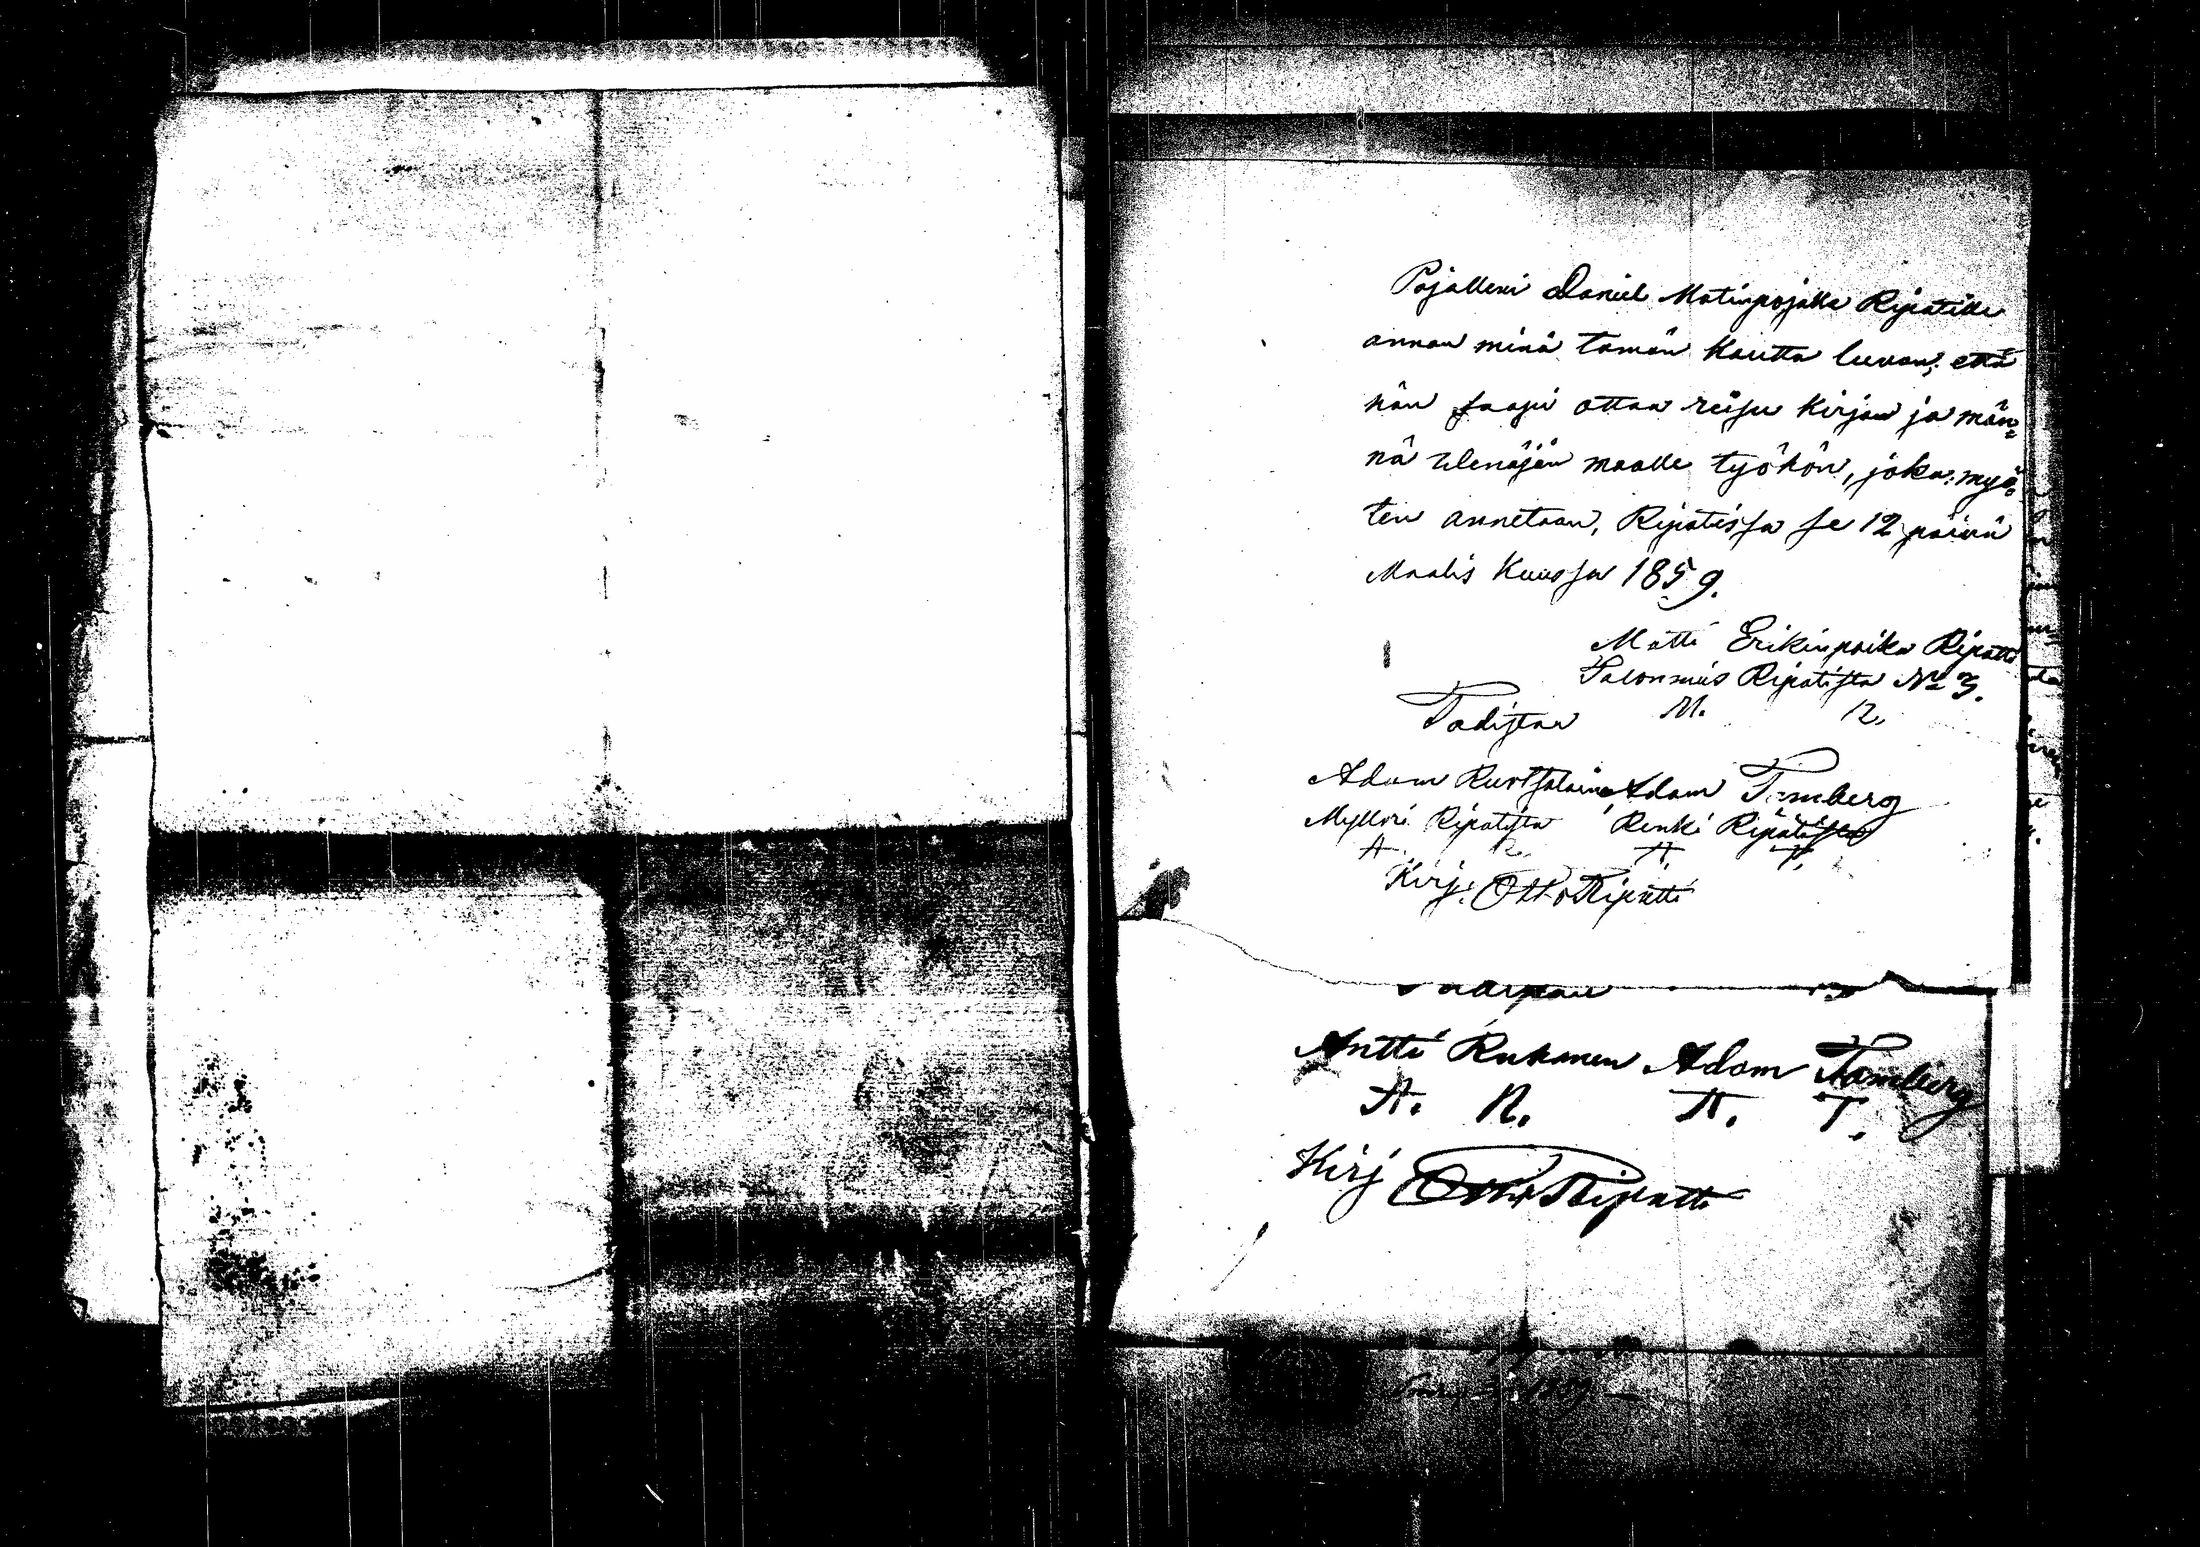 Pojalleni Daniel Matinpojalle Ripatille
annan minä tämän kautta luvan, että
hän saapi ottaa reisu kirjan ja män=
nä Wenäjän maalle työhön, joka myö=
ten annetaan, Ripatissa se 12 päivä
Maalis Kuussa 1859.
Matti Erikinpoika Ripatti
Talonmies Ripatista No 3.
M. R.
Todistaa
Adam Adam Tamberg
Mylläri Ripatista Renki Ripatista
A. R. A. T.
Kirj: Otto Ripatti
Antti Rukonen Adam Tamberg
A. R. A. T.
Kirj Otto Ripatti
1859